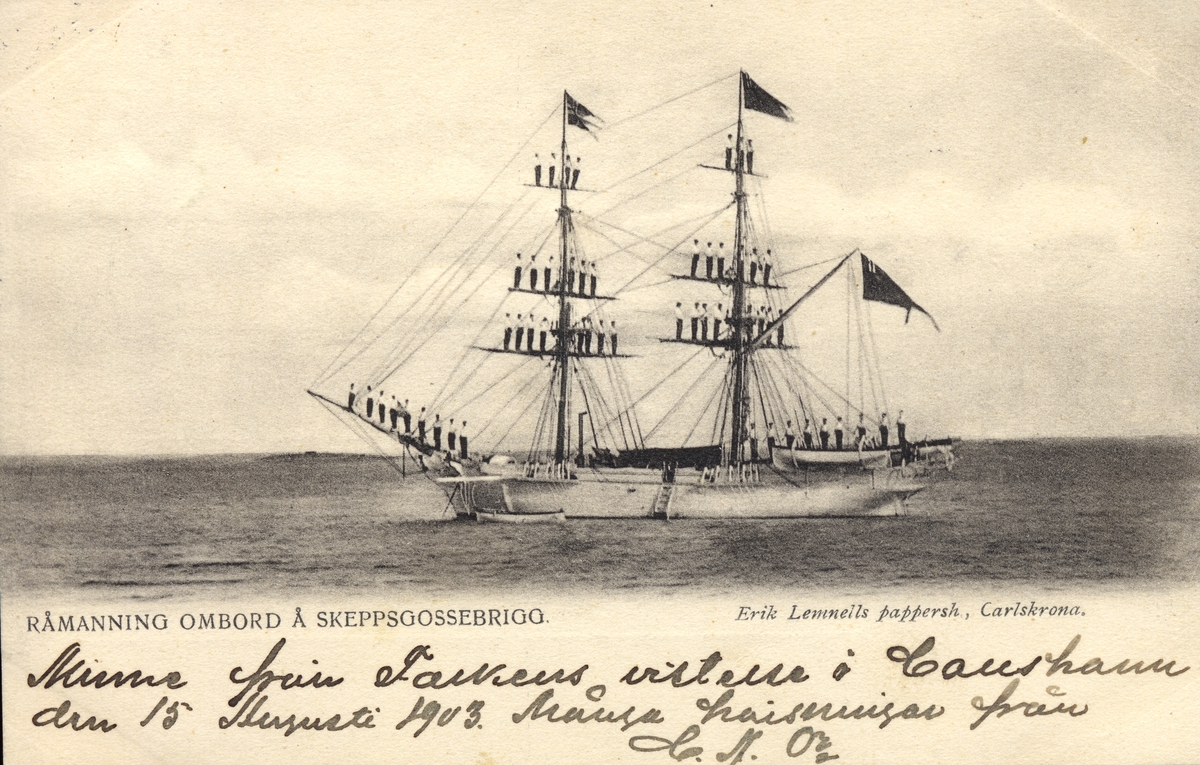 RÅMANNING OMBORD Å SKEPPSGOSSEBRIGG.
Erik Lemnells pappersh., Carlskrona.
Minne från Falkens vistelse i
den 15 Augusti 1903. Många från
C. N.